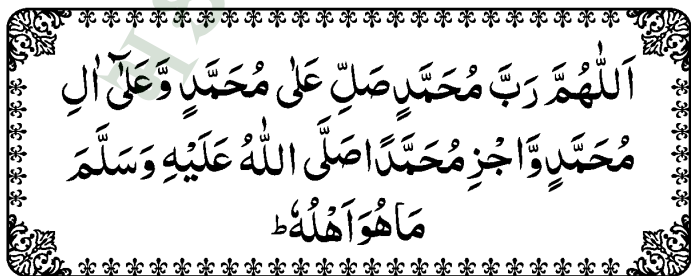 اَللّٰهُمَّ رَبَّ مُحَمَّدٍ صَلِّ عَلٰى مُحَمَّدٍ وَّعَلٰٓى اٰلِ
مُحَمَّدٍ وَّاجْزِ مُحَمَّدًا صَلَّى اللّٰهُ عَلَيْهِ وَسَلَّمَ
مَا هُوَ اَهْلُهٗ ؕ